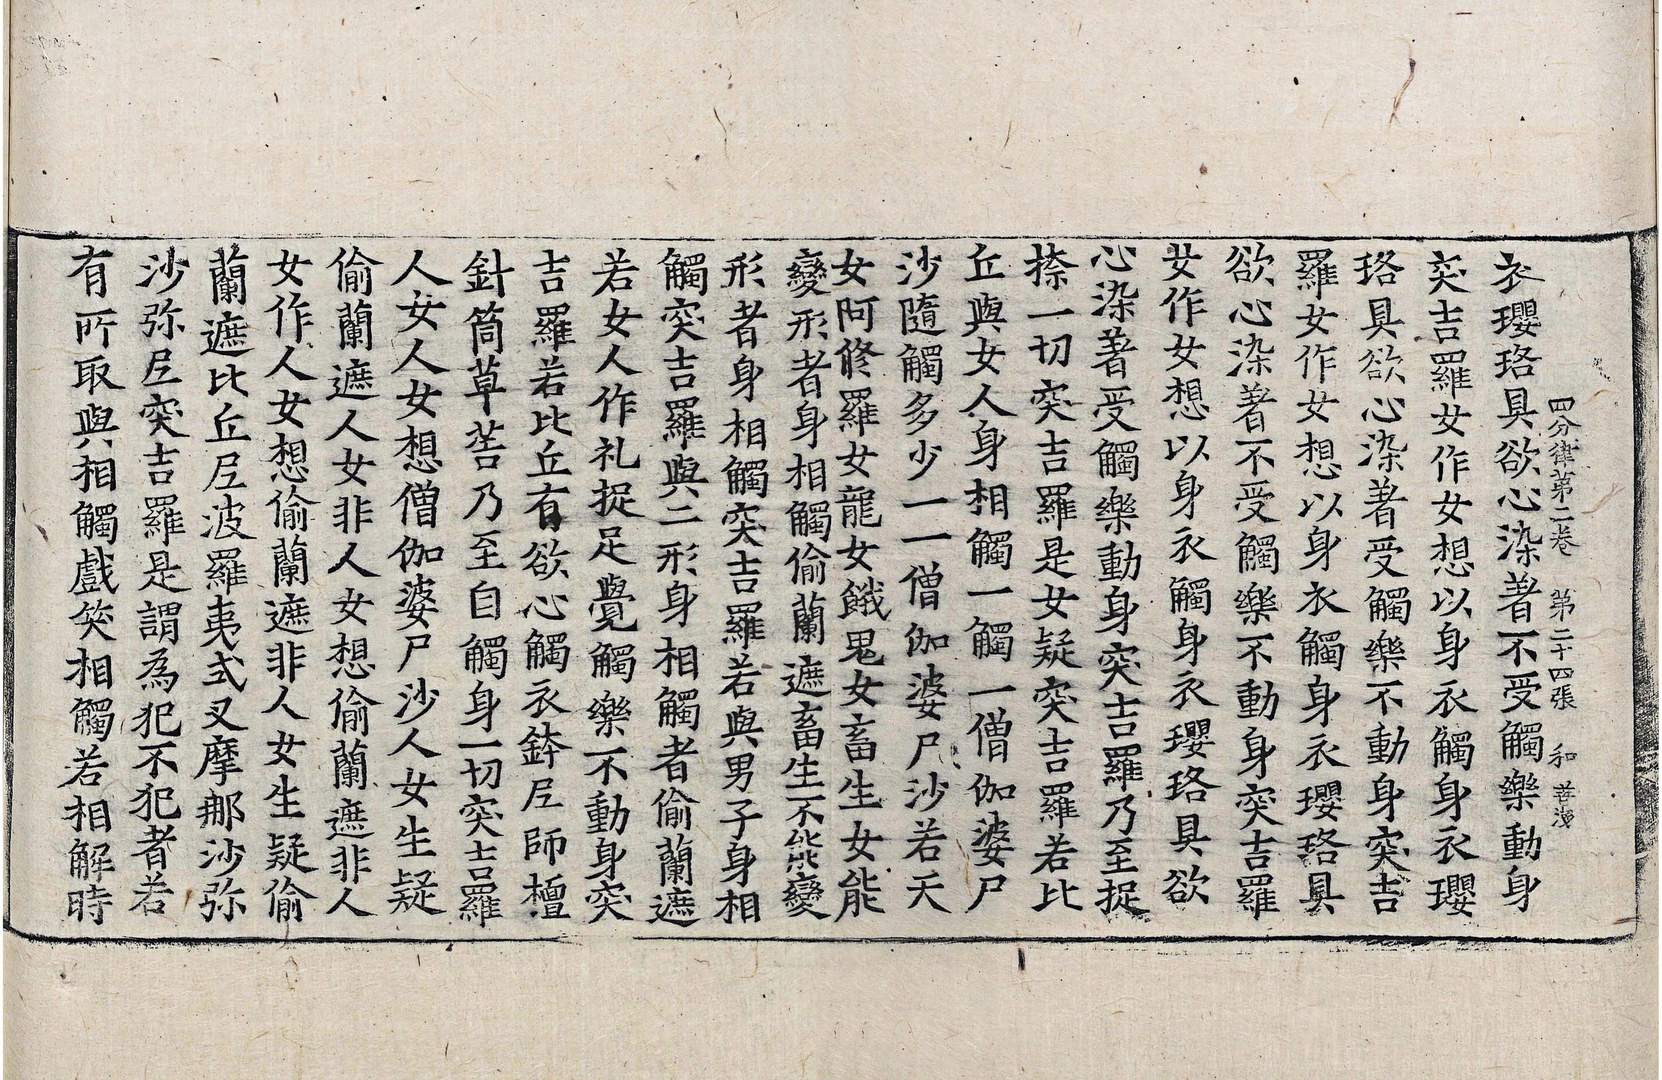 四分律第二卷 第二十四張 和
衣瓔珞具欲心染著不受觸樂動身
突吉羅女作女想以身衣觸身衣瓔
珞具欲心染著受觸樂不動身突吉
羅女作女想以身衣觸身衣瓔珞具
欲心染著不受觸樂不動身突吉羅
女作女想以身衣觸身衣瓔珞具欲
心染著受觸樂動身突吉羅乃至捉
捺一切突吉羅是女疑突吉羅若比
丘與女人身相觸一觸一僧伽婆尸
沙隨觸多少一一僧伽婆尸沙若天
女阿修羅女龍女餓鬼女畜生女能
變形者身相觸偷蘭遮畜生不能變
形者身相觸突吉羅若與男子身相
觸突吉羅與二形身相觸者偷蘭遮
若女人作礼捉足覺觸樂不動身突
吉羅若比丘有欲心觸衣鉢尼師檀
針筒草𦯧乃至自觸身一切突吉羅
人女人女想僧伽婆尸沙人女生疑
偷蘭遮人女非人女想偷蘭遮非人
女作人女想偷蘭遮非人女生疑偷
蘭遮比丘尼波羅夷式叉摩那沙弥
沙弥尼突吉羅是謂為犯不犯者若
有所取與相觸戲笑相觸若相解時